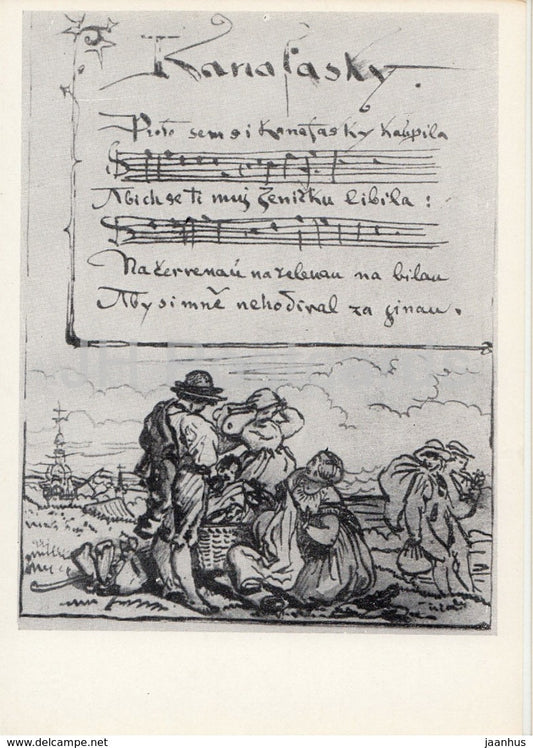 Kanafasky.
Proto sem si Kanafasky kaupila
Abich se ti muj Ženičku libila :
Na červenaú na zelenau na bilau
Aby si mně nehodíval za ginau.
www.delcampe.net
jaanhus